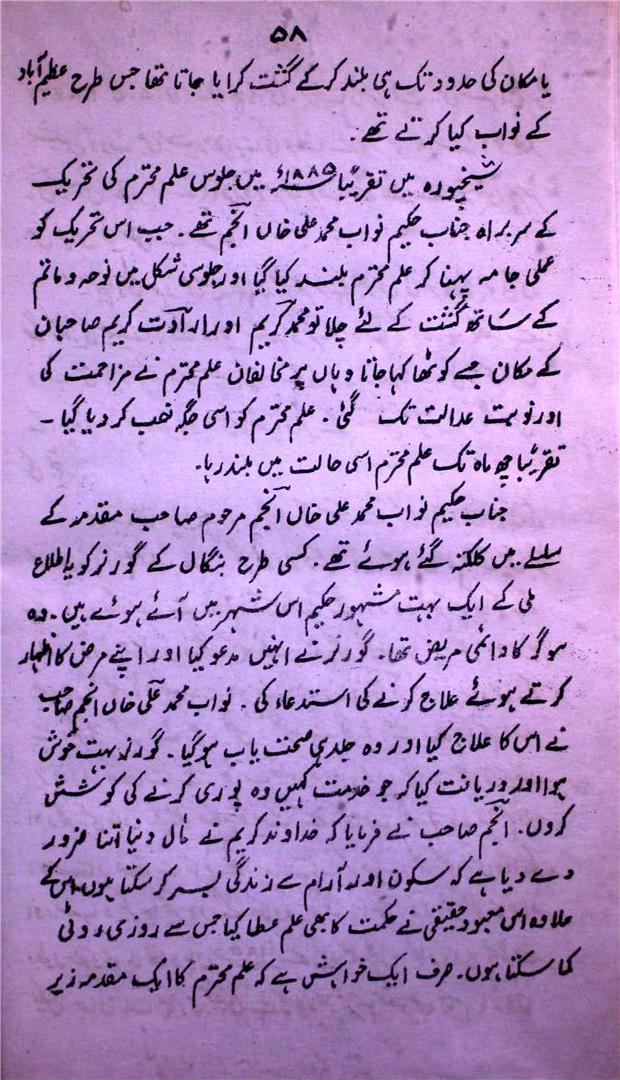 ۵۸
یا مکان کی حدود تک ہی بلند کر کے گشت کرایا جاتا تھا جس طرح عظیم آباد
کے نواب کیا کرتے تھے۔
شیخپورہ میں تقریباً ۱۸۸۵ء میں جلوس علم محترم کی تحریک
کے سربراہ جناب حکیم نواب محمد علی خاں انجم تھے۔ جب اس تحریک کو
عملی جامہ پہنا کر علم محترم بلند کیا گیا اور جلوسی شکل میں نوحہ و ماتم
کے ساتھ گشت کے لئے چلا تو محمد کریم اور ارادت کریم صاحبان
کے مکان جسے کوٹھا کہا جاتا وہاں پر مخالفان علم محترم نے مزاحمت کی
اور نوبت عدالت تک گئی۔ علم محترم کو اسی جگہ نصب کر دیا گیا۔
تقریباً چھ ماہ تک علم محترم اسی حالت میں بلند رہا۔
جناب حکیم نواب محمد علی خاں انجم مرحوم صاحب مقدمہ کے
سلسلے میں کلکتہ گئے ہوئے تھے۔ کسی طرح بنگال کے گورنر کو یہ اطلاع
ملی کے ایک بہت مشہور حکیم اس شہر میں آئے ہوئے ہیں۔ وہ
سوگر کا دائمی مریض تھا۔ گورنر نے انہیں مدعو کیا اور اپنے مرض کا اظہار
کرتے ہوئے علاج کرنے کی استدعاء کی۔ نواب محمد علی خاں انجم صاحب
نے اس کا علاج کیا اور وہ جلدی صحت یاب ہو گیا۔ گورنر بہت خوش
ہوا اور دریافت کیا کہ جو خدمت کہیں وہ پوری کرنے کی کوشش
کروں۔ انجم صاحب نے فرمایا کہ خداوند کریم نے مال دنیا اتنا ضرور
دے دیا ہے کہ سکون اور آرام سے زندگی بسر کر سکتا ہوں۔ اس کے
علاوہ اس معبود حقیقی نے حکمت کا بھی علم عطا کیا جس سے روزی روٹی
کما سکتا ہوں۔ صرف ایک خواہش ہے کہ علم محترم کا ایک مقدمہ زیر